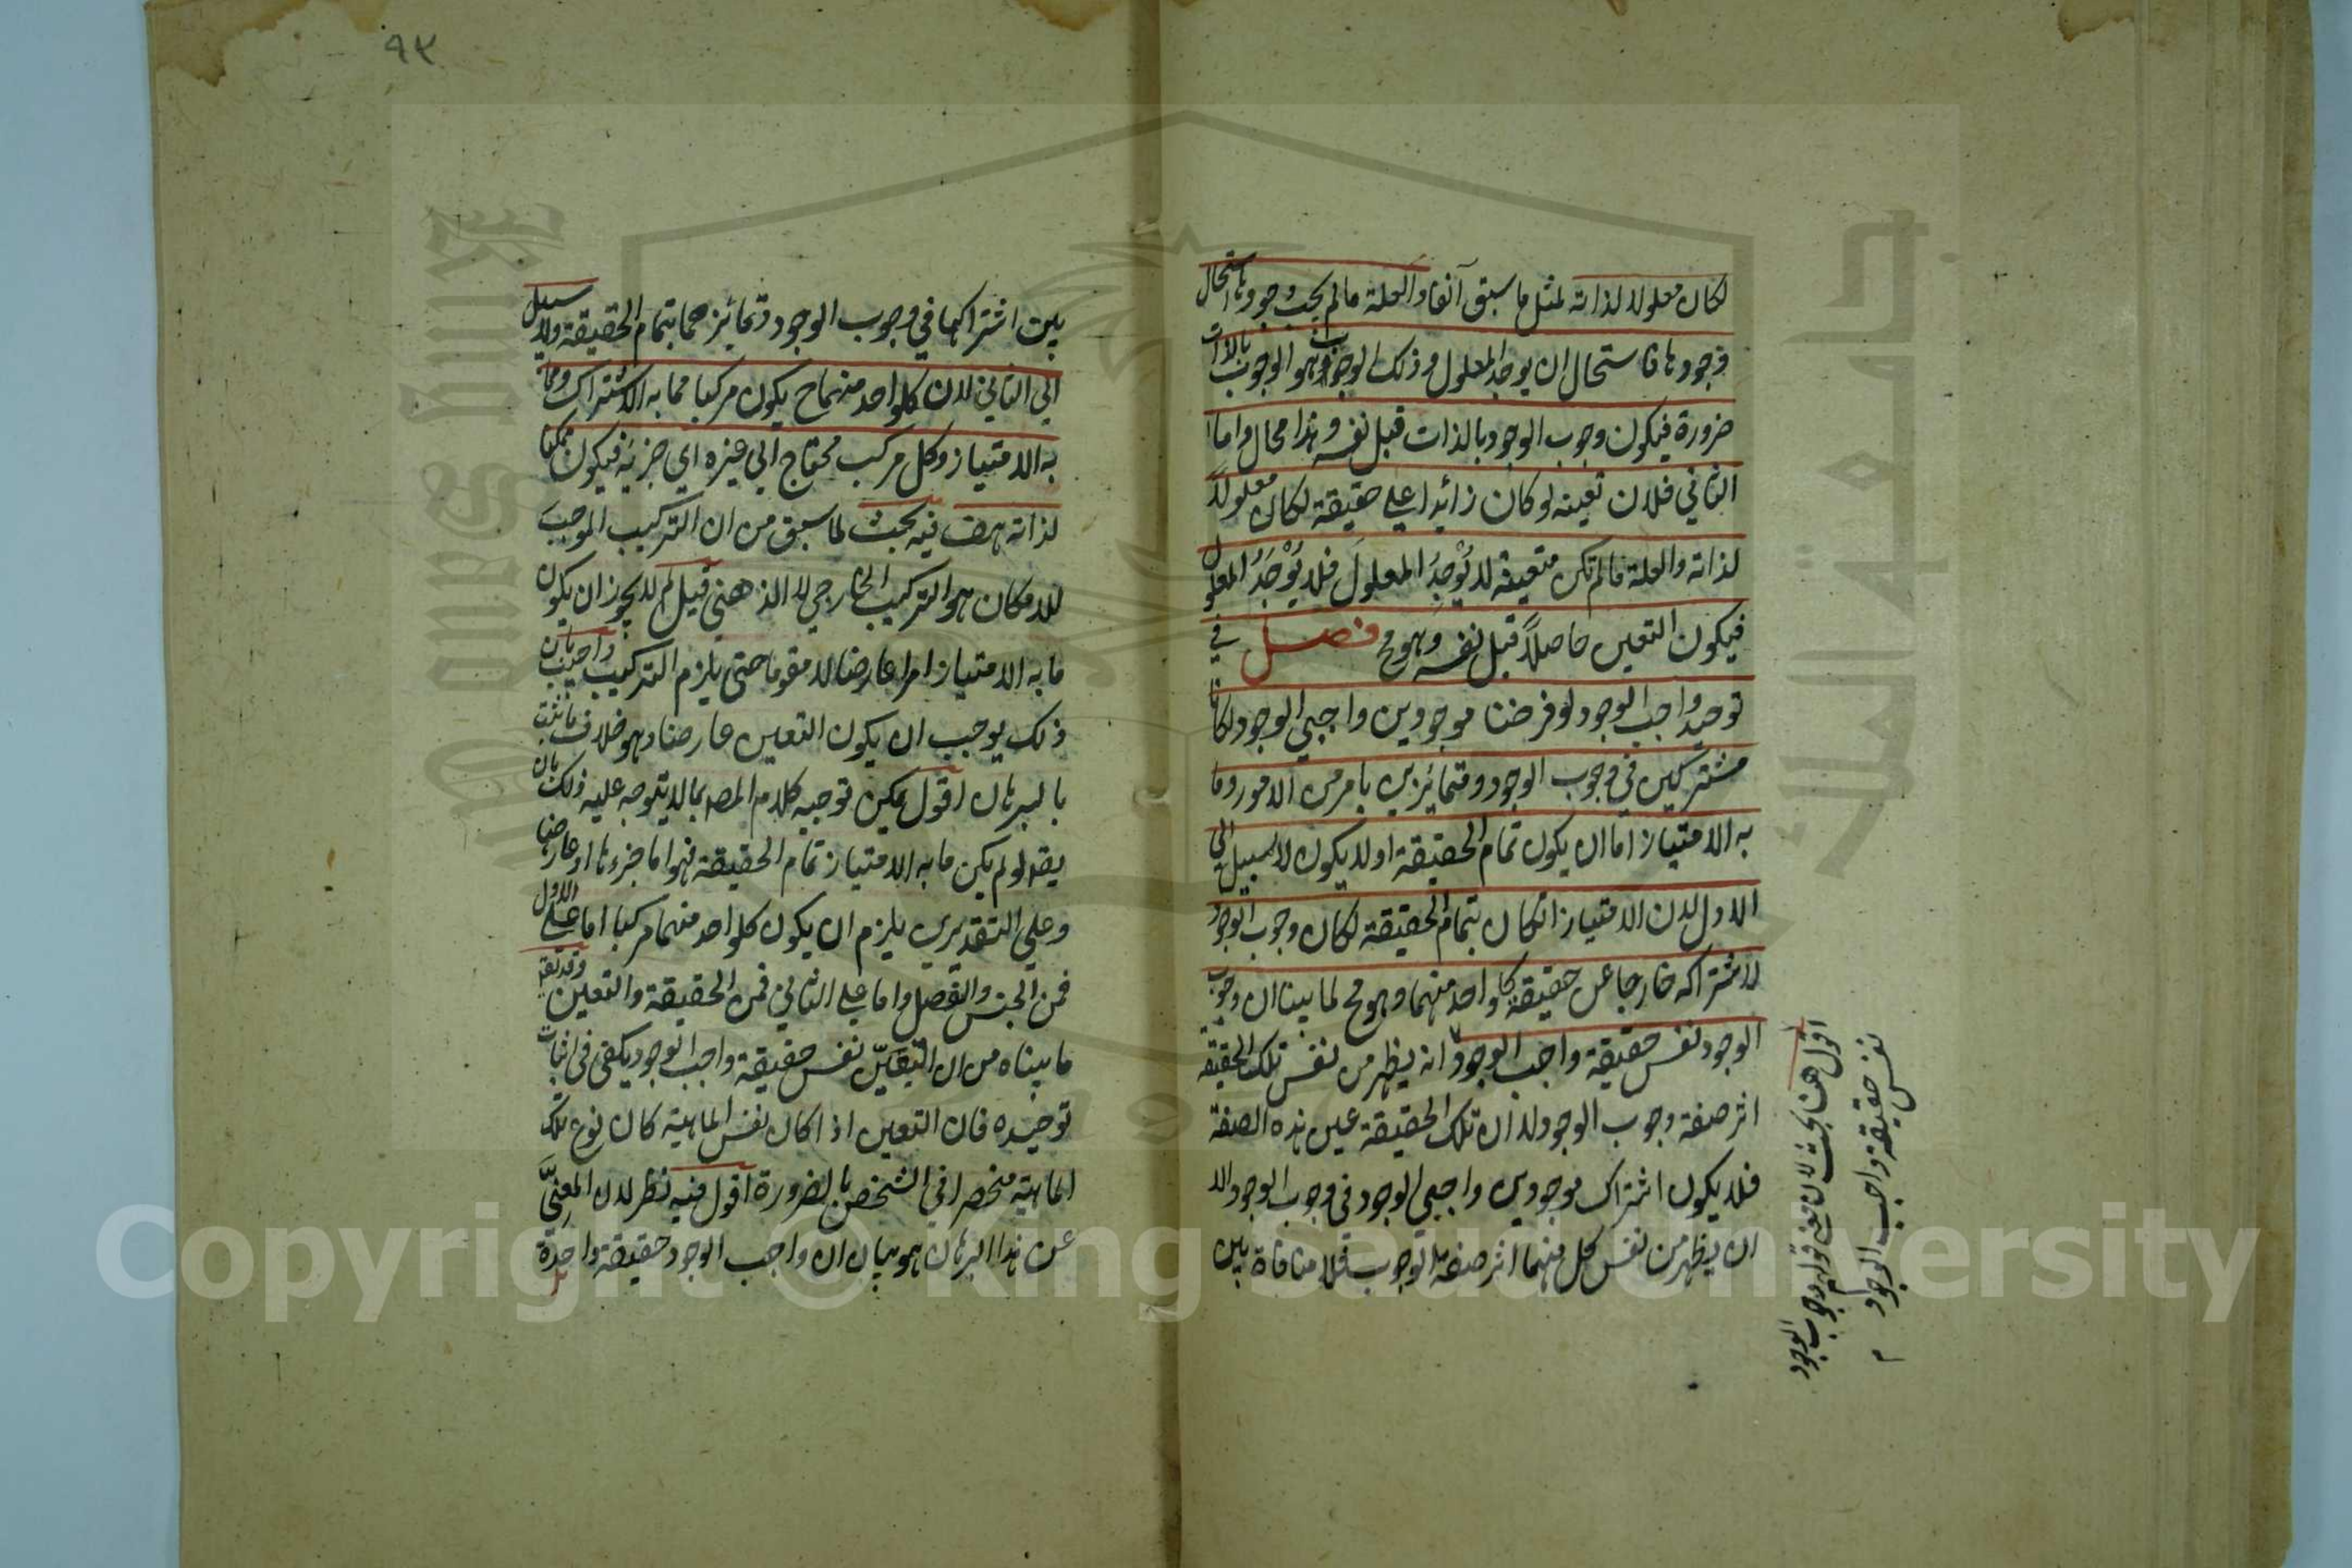 لكان معلولا لذاته لمثل ما سبق آنفا والعلة مالم يجب وجودها استحال
وجودها فاستحال ان يوجد المعلول وذلك الوجوب هو الوجوب بالذات
ضرورة فيكون وجوب الوجود بالذات قبل نفسه وهذا محال واما
الثاني فلان تعينه لو كان زائدا علي حقيقة لكان معلولا
لذاته والعلة مالم تكن متعينة لا يُوْجِدُ المعلولَ فلا يُوْجَدُ المعلول
فيكون التعين حاصلاً قبل نفسه وهو مح فصل في
توحيد واجب الوجود لو فرضنا موجودين واجبي الوجود لكانا
مشتركين في وجوب الوجود ومتمائزين بامر من الامور وما
به الامتياز اما ان يكون تمام الحقيقة اولا يكون لا سبيل الي
الاول لان الامتياز ان كان بتمام الحقيقة لكان وجوب الوجود
لاشتراكه خارجا عن حقيقة كلواحد منهما وهو مح لما بينا ان وجوب
الوجود نفس حقيقة واجب الوجود انه يظهر من نفس تلك الحقيقة
اثر صفة وجوب الوجود لا ان تلك الحقيقة عين هذه الصفة
فلا يكون اشتراك موجودين واجبي الوجود في وجوب الوجود الا
ان يظهر من نفس كل منهما اثر صفة الوجوب فلا منافاة بين
اقول هنا بحث لان معني قولهم وجوب الوجود
نفس حقيقة واجب الوجود
٩٣
بين اشتراكهما في وجوب الوجود وتمائزهما بتمام الحقيقة ولا سبيل
الي الثاني لان كلواحد منهما ح يكون مركبا مما به الاشتراك ومما
به الامتياز وكل مركب محتاج الي غيره اي جزئه فيكون ممكنا
لذاته هف فيه بحث لما سبق من ان التركيب الموجب
للامكان هو التركيب الخارجي لا الذهني قيل لم لا يجوز ان يكون
ما به الامتياز امرا عارضا لا مقوما حتي يلزم التركيب واجيب بان
ذلك يوجب ان يكون التعين عارضا وهو خلاف ما ثبت
بالبرهان اقول يمكن توجيه كلام المصـ بما لا يتوجه عليه ذلك بان
يقـ لو لم يكن ما به الامتياز تمام الحقيقة فهو اما جزءها او عارضا
وعلي التقديرين يلزم ان يكون كلواحد منهما مركبا اما علي الاول
فمن الجنس والفصل واما علي الثاني فمن الحقيقة والتعين وقد يقـ
ما بيناه من ان التعيّن نفس حقيقة واجب الوجود يكفي في اثبات
توحيده فان التعين اذا كان نفس الماهية كان نوع تلك
الماهية منحصرا في الشخص بالضرورة اقول فيه نظر لان المعنيَّ
عن هذا البرهان هو بيان ان واجب الوجود حقيقة واحدة